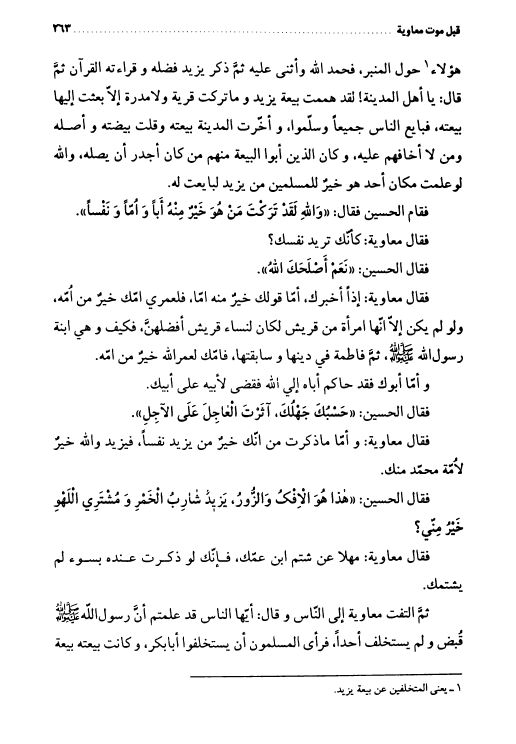 قبل موت معاوية ........................................................................ ٣٦٣
هؤلاء١ حول المنبر، فحمد الله وأثنى عليه ثمَّ ذكر يزيد فضله و قراءته القرآن ثمَّ
قال: يا أهل المدينة! لقد هممت بيعة يزيد و ماتركت قرية ولامدرة إلاّ بعثت إليها
بيعته، فبايع الناس جميعاً وسلّموا، و أخّرت المدينة بيعته وقلت بيضته و أصله
ومن لا أخافهم عليه، و كان الذين أبوا البيعة منهم من كان أجدر أن يصله، والله
لوعلمت مكان أحد هو خيرٌ للمسلمين من يزيد لبايعت له.
فقام الحسين فقال: «وَاللهِ لَقَدْ تَرَكْتَ مَنْ هُوَ خَيْرٌ مِنْهُ أَباً وَ اُمّاً وَ نَفْساً».
فقال معاوية: كأنّك تريد نفسك؟
فقال الحسين: «نَعَمْ أَصْلَحَكَ اللهُ».
فقال معاوية: إذاً أخبرك، أمّا قولك خيرٌ منه امّا، فلعمري امّك خيرٌ من اُمّه،
ولو لم يكن إلاّ انّها امرأة من قريش لكان لنساء قريش أفضلهنَّ، فكيف و هي ابنة
رسول‌الله ﷺ، ثمَّ فاطمة في دينها و سابقتها، فامّك لعمرالله خيرٌ من امّه.
و أمّا أبوك فقد حاكم أباه إلي الله فقضى لأبيه على أبيك.
فقال الحسين: «حَسْبُكَ جَهْلُكَ، آثَرْتَ الْعاجِلَ عَلَى الآجِلِ».
فقال معاوية: و أمّا ماذكرت من انّك خيرٌ من يزيد نفساً، فيزيد والله خيرٌ
لاُمّة محمّد منك.
فقال الحسين: «هٰذا هُوَ الاِفْكُ وَالزُّورُ، يَزِيدُ شارِبُ الْخَمْرِ وَ مُشْتَرِي اللَّهْوِ
خَيْرٌ مِنِّي؟
فقال معاوية: مهلا عن شتم ابن عمّك، فـإنّك لو ذكـرت عنـده بسـوء لم
يشتمك.
ثمَّ التفت معاوية إلى النّاس و قال: أيّها الناس قد علمتم أنَّ رسول‌اللّه ﷺ
قُبض و لم يستخلف أحداً، فرأى المسلمون أن يستخلفوا أبابكر، و كانت بيعته بيعة
١ ـ يعنى المتخلفين عن بيعة يزيد.